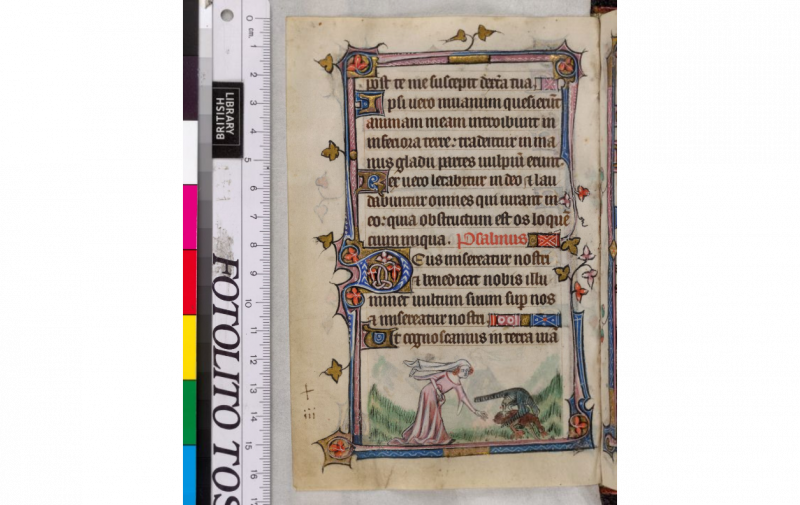 post te me suscepit dextra tua
Ipsi uero in uanum quesierūt
animam meam introibunt in
inferiora terre: tradentur in ma
nus gladii partes uulpiū erunt
Rex uero letabitur in deo ⁊ lau
dabuntur omnes qui iurant in
eo: quia obstructum est os loquē
cium iniqua. Psalmus
Deus misereatur nostri
⁊ benedicat nobis illu
minet uultum suum sup nos
⁊ misereatur nostri
Ut cognoscamus in terra uia
+
iii
BRITISH
LIBRARY
cm.
0
1
2
3
4
5
6
7
8
9
10
11
12
13
14
15
16
FOTOLITO TOS